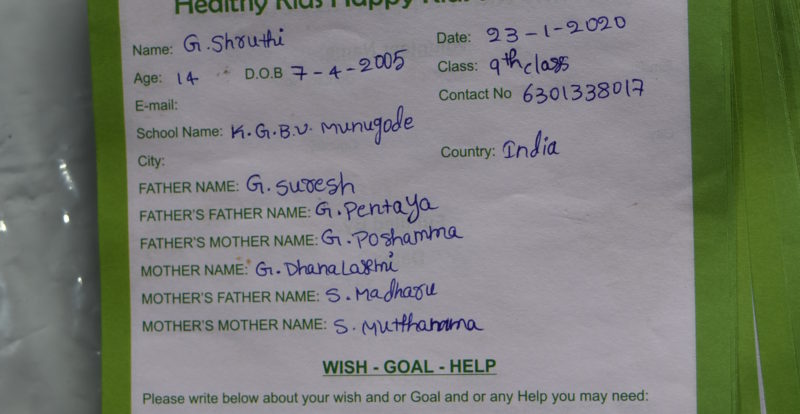 Healthy Kids Happy Kids
Name: G. Shruthi Date: 23-1-2020
Age: 14 D.O.B 7-4-2005 Class: 9th class
E-mail: Contact No 6301338017
School Name: K.G.B.V. Munugode
City: Country: India
FATHER NAME: G. Suresh
FATHER'S FATHER NAME: G. Pentaya
FATHER'S MOTHER NAME: G. Poshamma
MOTHER NAME: G. Dhanalaxmi
MOTHER'S FATHER NAME: S. Madharu
MOTHER'S MOTHER NAME: S.
WISH - GOAL - HELP
Please write below about your wish and or Goal and or any Help you may need: